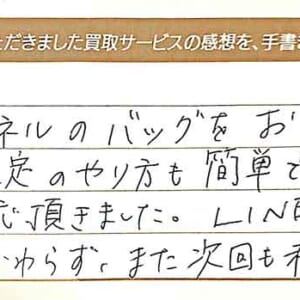 ただきました買取サービスの感想を、手書
ネルのバッグをお
定のやり方も簡単で
で頂きました。LINE
わらず、また次回も